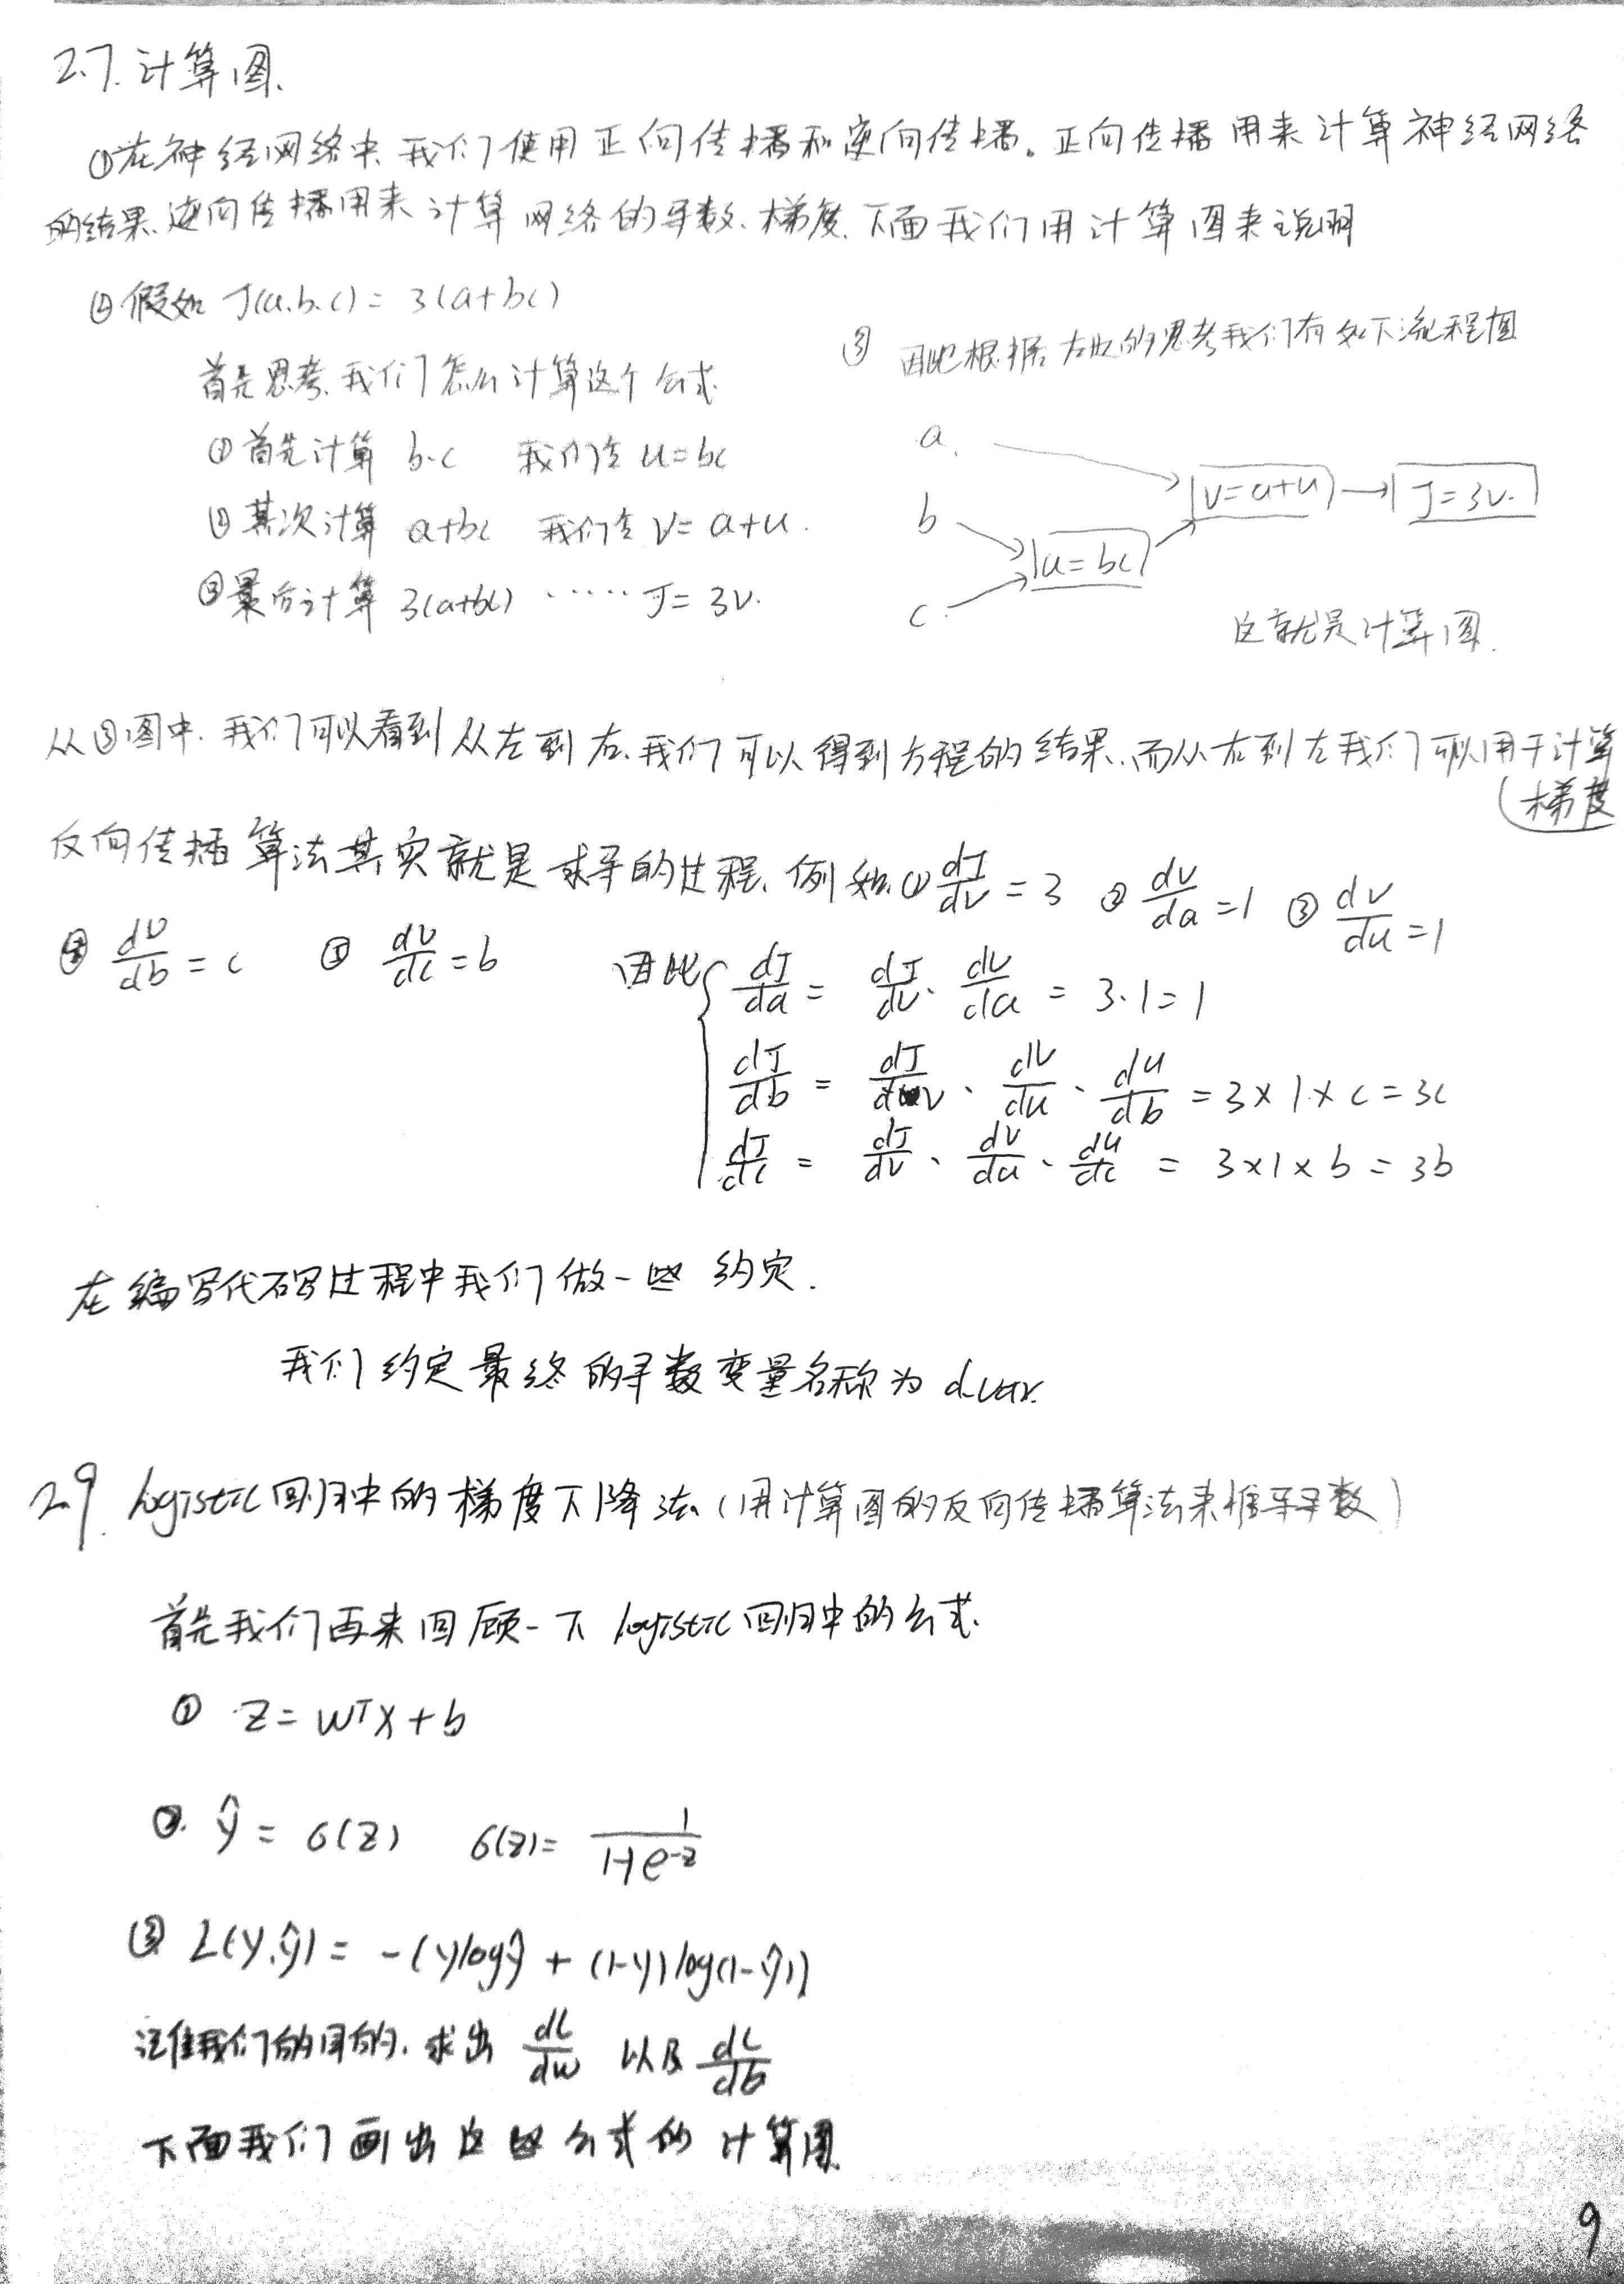 2.7. 计算图.
①在神经网络中 我们使用正向传播和逆向传播。正向传播用来计算神经网络
的结果.逆向传播用来计算网络的导数.梯度.下面我们用计算图来说明
②假如 J(a.b.c) = 3(a+bc)
首先思考.我们怎么计算这个公式.
①首先计算 b·c 我们令 u=bc
②其次计算 a+bc 我们令 V=a+u.
③最后计算 3(a+bc) ······ J=3V.
③ 因此根据左边的思考我们有如下流程图
a.
b
c.
u=bc
V=a+u
J=3V.
这就是计算图.
从③图中.我们可以看到从左到右.我们可以得到方程的结果.而从右到左我们可以用于计算
梯度
反向传播算法其实就是求导的过程.例如.① dJ/dv = 3 ② dv/da = 1 ③ dv/du = 1
④ dv/db = c ⑤ dv/dc = b
因此 dJ/da = dJ/dv · dv/da = 3·1=1
dJ/db = dJ/dv · dv/du · du/db = 3×1×c=3c
dJ/dc = dJ/dv · dv/du · du/dc = 3×1×b=3b
在编写代码过程中我们做一些约定.
我们约定最终的导数变量名称为 dvar.
2.9. logistic回归中的梯度下降法.(用计算图的反向传播算法来推导导数)
首先我们再来回顾一下 logistic回归中的公式.
① Z=WᵀX+b
②. ŷ = σ(z) σ(z)= 1/(1+e⁻ᶻ)
③ L(y.ŷ) = -(ylogŷ + (1-y)log(1-ŷ))
记住我们的目的.求出 dL/dw 以及 dL/db
下面我们画出这些公式的计算图.
9